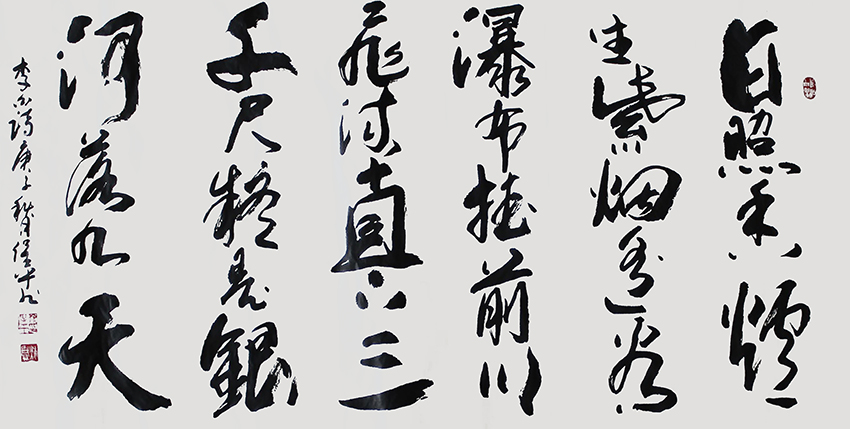 日照香炉
生紫烟遥看
瀑布挂前川
飞流直下三
千尺疑是银
河落九天
李白诗庚子秋月健平书